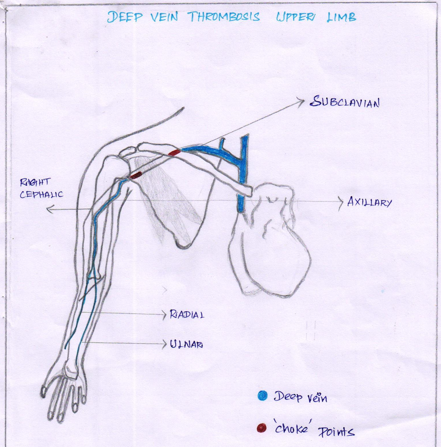 DEEP VEIN THROMBOSIS UPPER LIMB
SUBCLAVIAN
RIGHT
CEPHALIC
AXILLARY
RADIAL
ULNAR
Deep vein
'choke' points